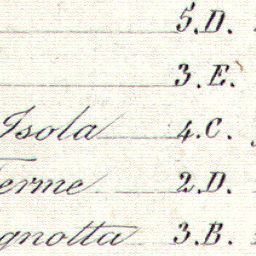 5.D.
3.E.
Isola 4.C.
Terme 2.D.
gnotta 3.B.